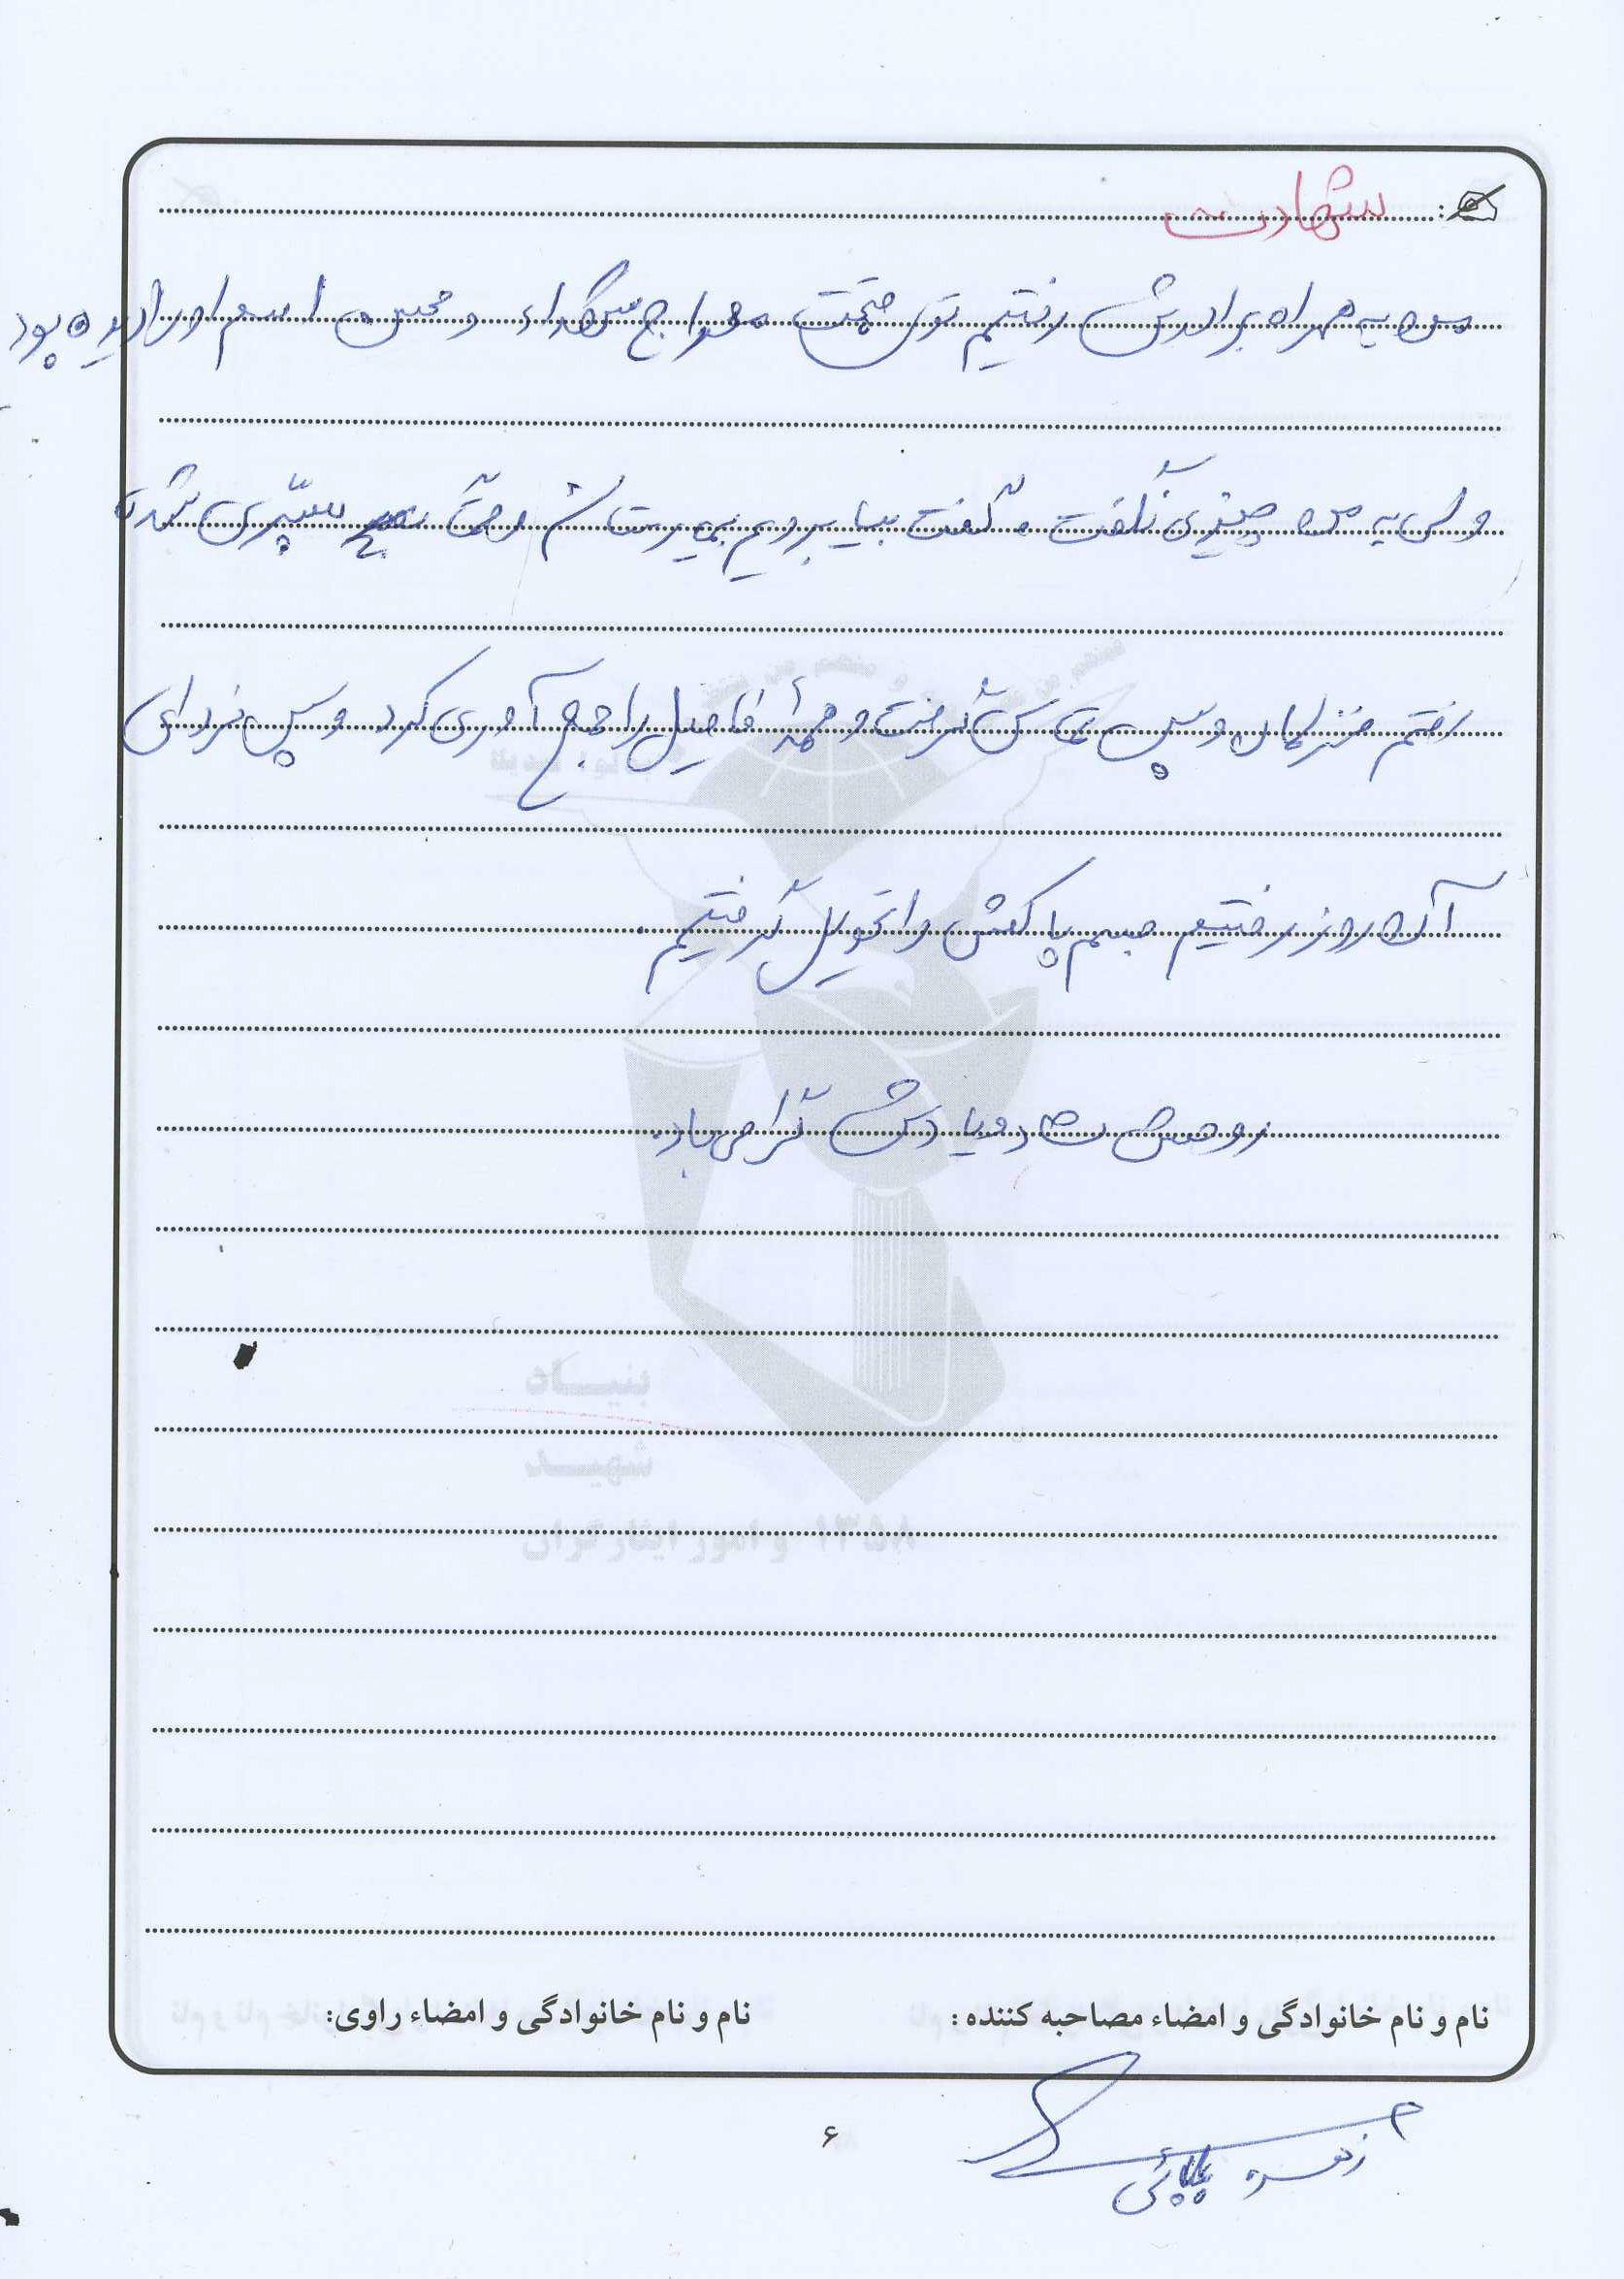 شهادت
من به همراه برادرش رفتیم توی قسمت معراج شهداء و محسن اسم او را دیده بود
ولی به من چیزی نگفت گفت بیا برویم بیمارستان وقتی سپری شد
رفتم منزلمان و سپس تماس گرفت و همهٔ فامیل را جمع آوری کرد و سپس فردای
آن روز رفتیم جسم پاکش را تحویل گرفتیم.
روحش شاد و یادش گرامی باد.
بنیاد
شهید
و امور ایثارگران ۱۳۵۸
نام و نام خانوادگی و امضاء مصاحبه کننده :
نام و نام خانوادگی و امضاء راوی:
بابائی
۶